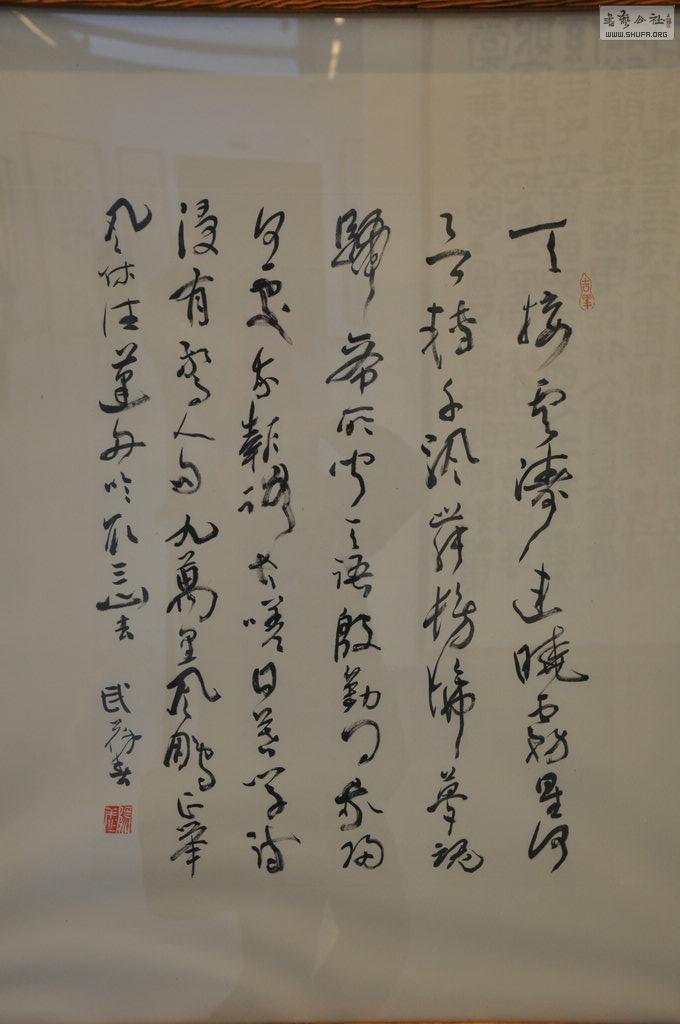 天接雲濤連曉霧星河
欲轉千帆舞彷彿夢魂
歸帝所聞天語殷勤問我歸
何處我報路長嗟日暮學詩
漫有驚人句九萬里風鵬正舉
風休住蓬舟吹取三山去
书艺公社
WWW.SHUFA.ORG